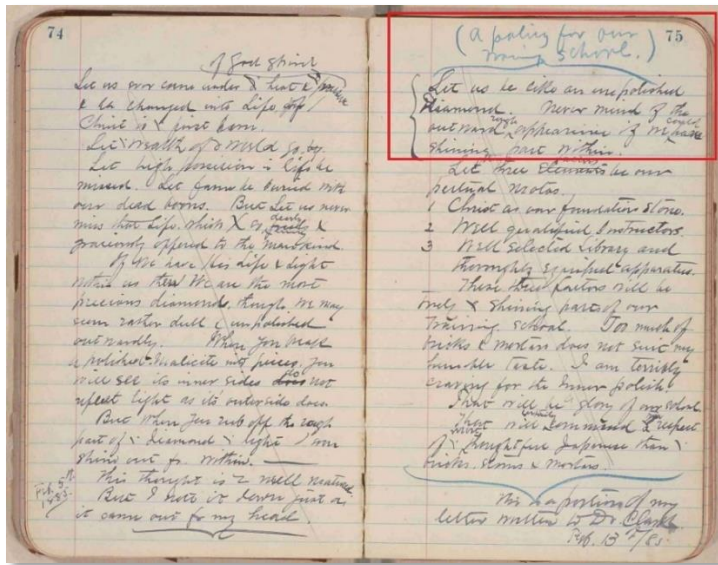 74
of God's Spirit
Let us ever come under heat &
& be changed into Life, for
Christ is first born.
Let wealth of world go by.
Let high position in life be
missed. Let fame be buried with
our dead bones. But Let us never
miss that Life, which is &
graciously offered to the mankind.
If We have His Life & Light
within us then We are the most
precious diamonds, though We may
seem rather dull & unpolished
outwardly. When you break
a polished Malicite into pieces, you
will see its inner sides do not
reflect light as its outerside does.
But when you rub off the rough
part of diamond light
shine out fr. within.
This thought is
But I note it down just as
it came out fr my head
Feb. 5th
1885
75
(A policy for our
training school.)
Let us be like an unpolished
diamond. Never mind of the
outward rough appearance if we could have
shining part within.
Let three factors be our
perpetual mottos.
1 Christ as our foundation Stone.
2 Well qualified Instructors.
3 Well selected Library and
thoroughly equipped apparatus.
These three factors will be
truly shining part of our
Training School. Too much of
bricks & morters does not suit my
humble taste. I am terribly
craving for the inner polish.
That will be glory of our school
That will command respect
of thoughtful Japanese than
bricks, stones & morters.
This is a portion of my
letter written to Dr. Clark
Feb. 13th /85.